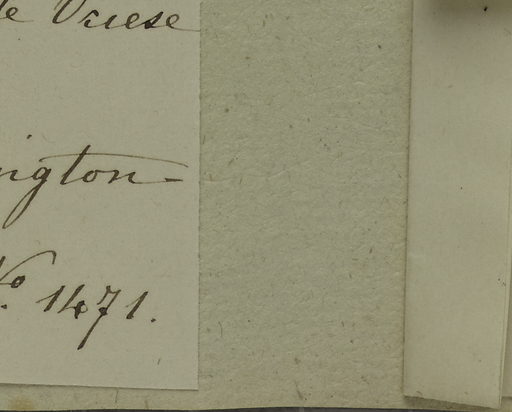 de Vriese
ngton
No. 1471.